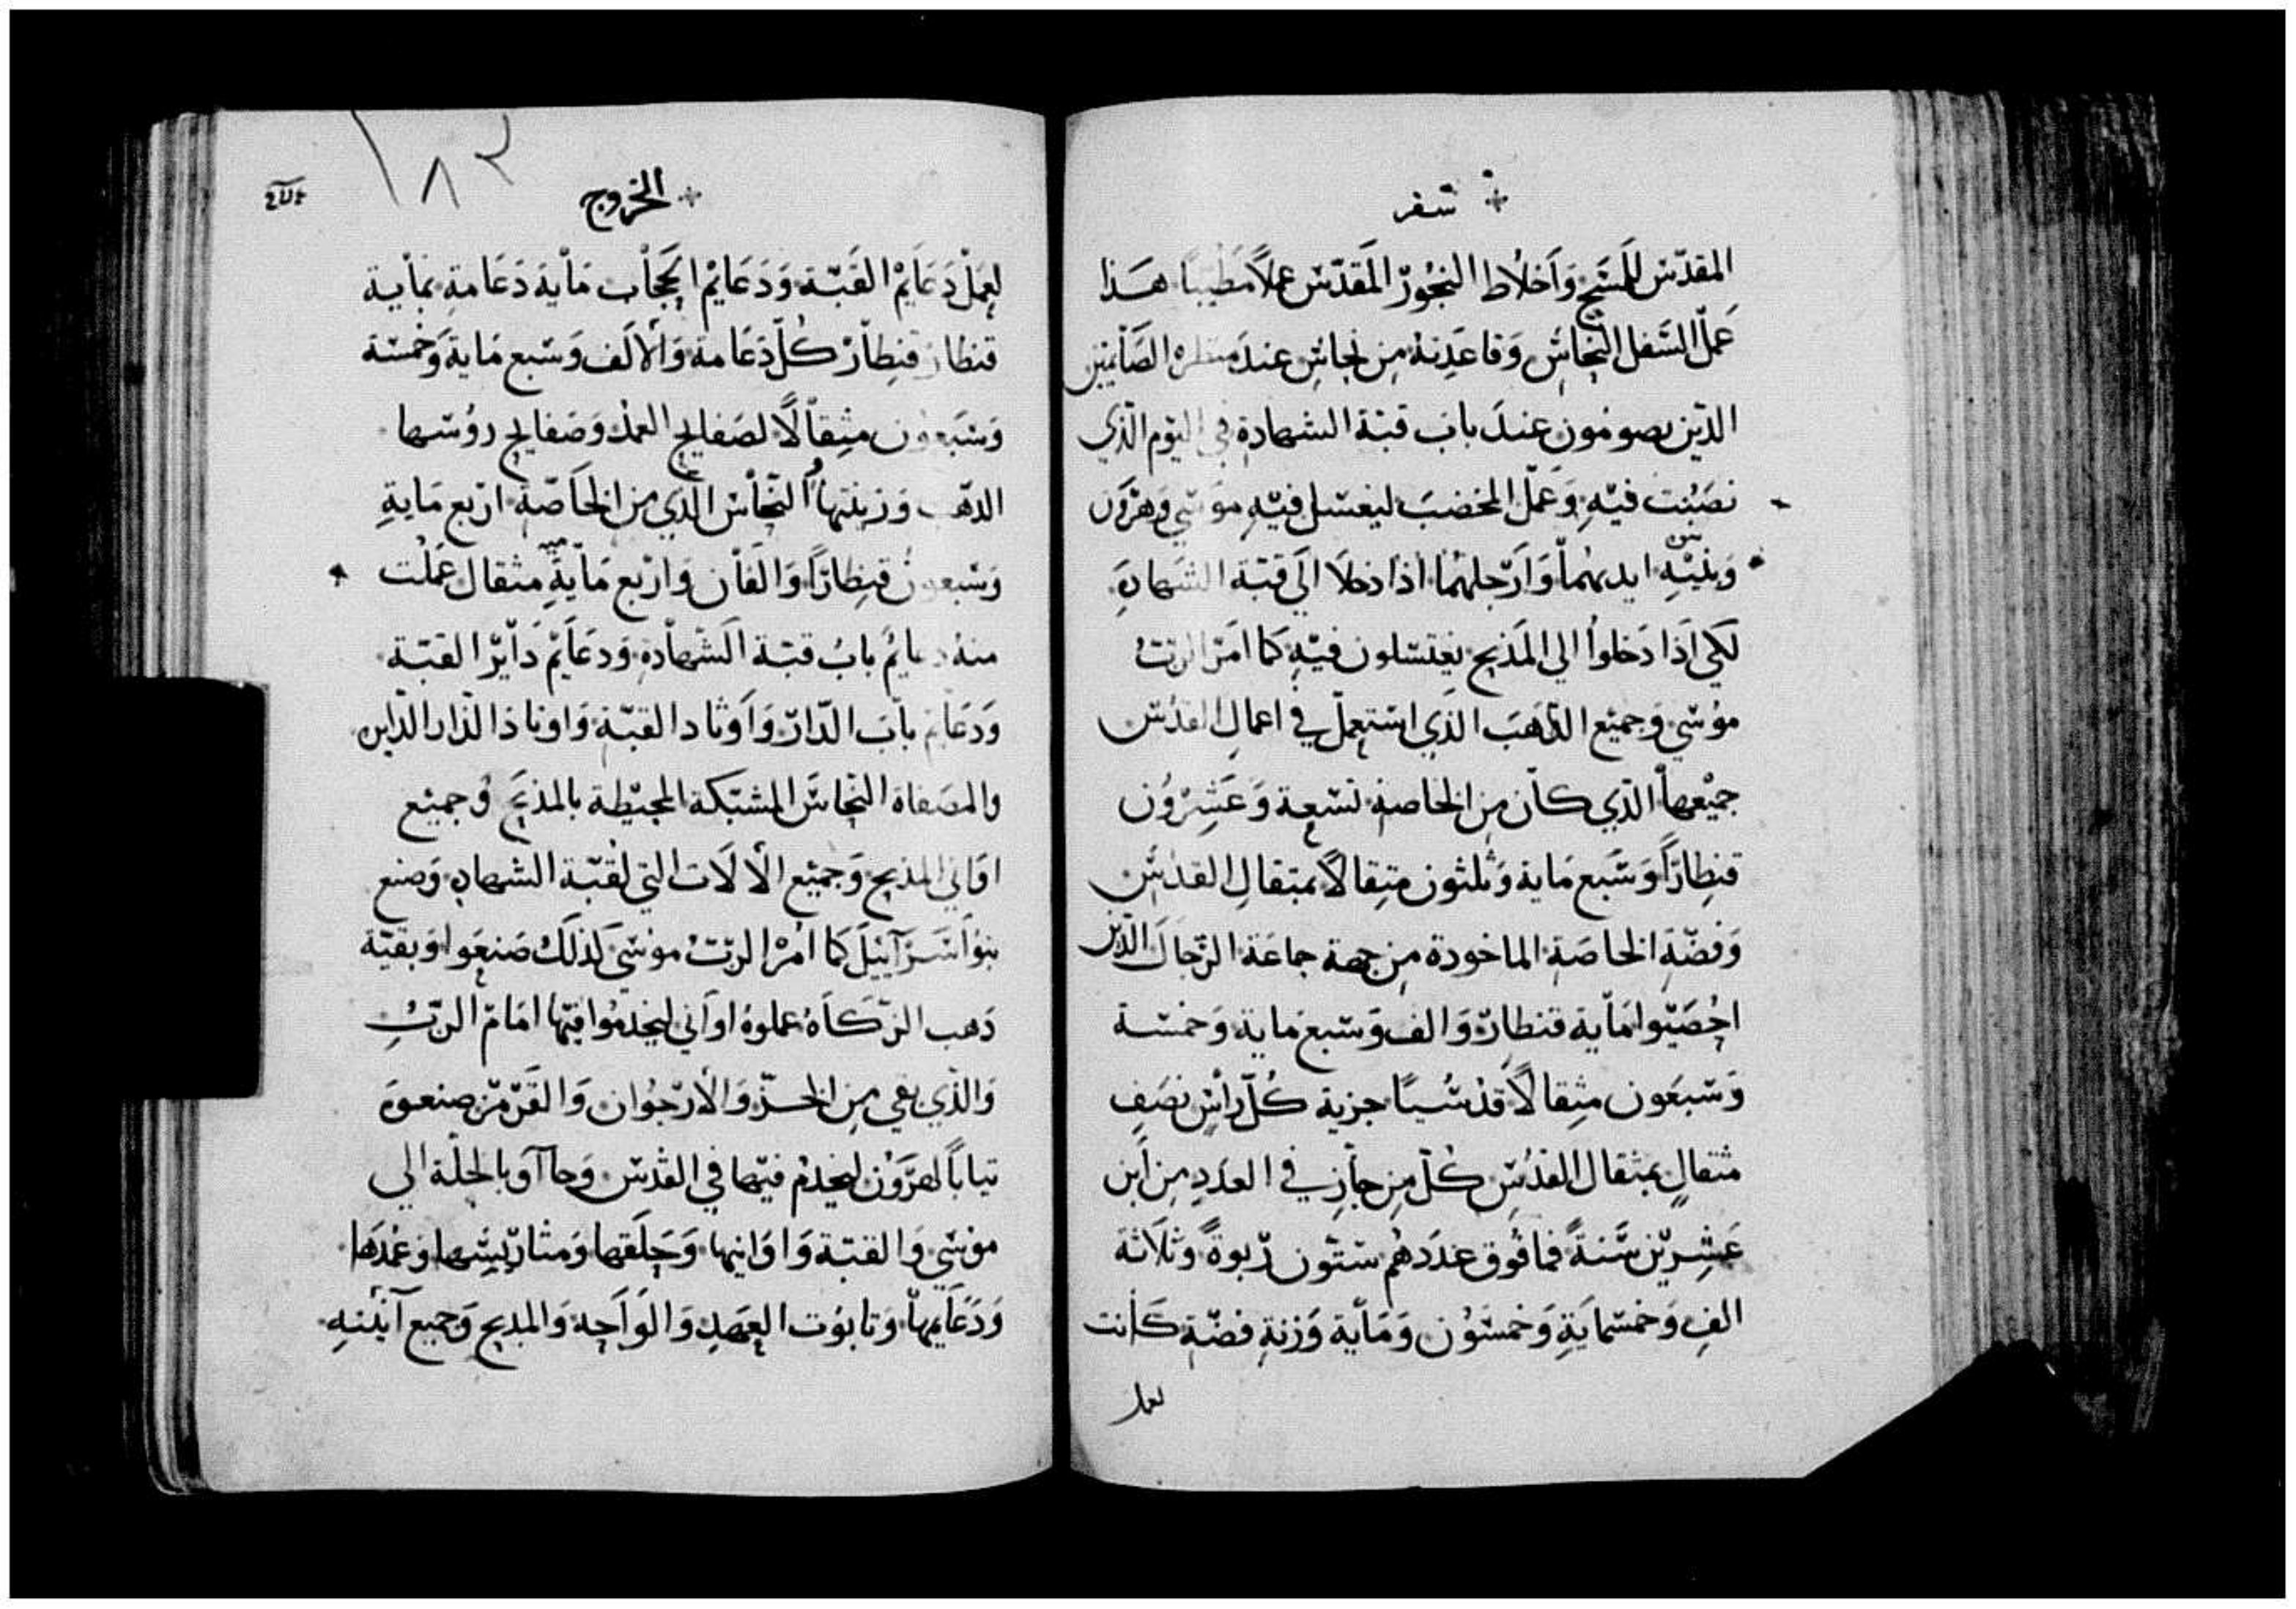 سفر
المقدّس للمسَح وَاَخلاط البخُورّ المَقدّس عملاً مَطيّباً هَذا
عَملّ السَفل النحّاسّ وَقاعَدِتهُ مِن نحاسٍ عندَ الصَآيمين
الذّين يصومُون عندَ بابَ قبّة الشهادةِ في اليَوم الذّي
نصَبُت فيّهِ وَعَملّ المخضبَ ليغسّل فيّهِ موَسّي وَهرٌوَن
وَبنيّهِ ايديهُماّ وَاَرّجلهُمُا اذا دَخلاَ الَي قبّة الشهادةِ
لكَي اَذَا دَخلوُا الي المَذبح يغتسّلون فيّهِ كمَا امَرّ الربّ
موُسّي وَجميّع الذّهَبَ الذّي استعِملّ في اعمالِ القدُسّ
جميْعهاّ الذّي كانّ مِن الخاصةِ تسّعة وَعَشِرّوُن
قنِطارًّا وَسَّبع مَاية وَثلثون مثِقالاً بمثقالِ القدسّ
وَفضّةِ الخاصَةِ الماخودة مِن جهة جماعَة الرّجالَ الذّين
احُصَيّوا مَاّية قنطارّ وَالف وَسّبع مَاية وَخمسّة
وَسّبعَون مثِقالاً قدسُّيًا جزية كلُّ راَسٍ نصَفِ
مثقالٍ بمثقال القدُسِّ كُلّ مِن جاَزَ في العدَدِ مِن اَبن
عَشِريّن سَّنةً فما فُوق عدَدهُم ستّون ربّوةً وَثلاَثة
الفِ وَخمسّمايَةِ وَخمسّوُن وَمَاّية وَزنةِ فضّةٍ كَانت
لعمل
الخروج
١٨٣
لعِمَلّ دَعَايَمْ القَبّة وَدَعَايمْ الحجَاب مَاّيةَ دَعَامةِ بمَاّية
قنطارّ قنِطاّرْ كلُّ دَعَامة وَالاَلَف وَسّبع مَاية وَخمسّة
وَسَّبعوُن مثِقاّلاً لصَفايح العمُد وَصَفايح روُسّها
الذهّب وَزينتهاُ النحّاسّ الذّي مِن الخَاصّة ارّبع مَايةِ
وَسّبعوُن قنِطارًّا وَالفَاّن وَارّبع مَايةٍّ مثقال عَملْت
منهُ دعايمُ بابُ قبّة الشّهاّدةِ وَدعَايَمْ دَاّيرّ القبّة
وَدَعَايم باّبَ الدّارّ وَاَوتاد القبّة وَاوتادَ الدّار الدّاير
والمصَفاة النحّاسّ المشبّكة المحيّطة بالمذبَحّ وَجميّع
اوَاني المذبح وَجميّع الاَلاَت التي لقُبّة الشهادةِ وَصنع
بنوُ اَسّرَآئيلَ كمَا امُرْ الربّ موُسّي كذلَكُ صَنعَوا وَبقيّة
دَهب الزّكَاهُ عملوهُ اوَاني ليخدمُوا فيّها امَامّ الربّ
وَالذّي بقي مِن الخزّ وَالاَرّجوُان وَالقَرّمّز صنعوَهُ
تياباً لهَرٌوَن ليخدِمُ فيّها في القدّس وَجاَآوَ بالحلّة الي
موُسّي وَالقبّة وَاوَانيها وَحَلقَها وَمتارّيسّها وَعمْدَها
وَدَعَايَمِهاّ وَتابوُت العَهدِ وَالوَاحهِ وَالمدبح وَجميع آنيّتهِ